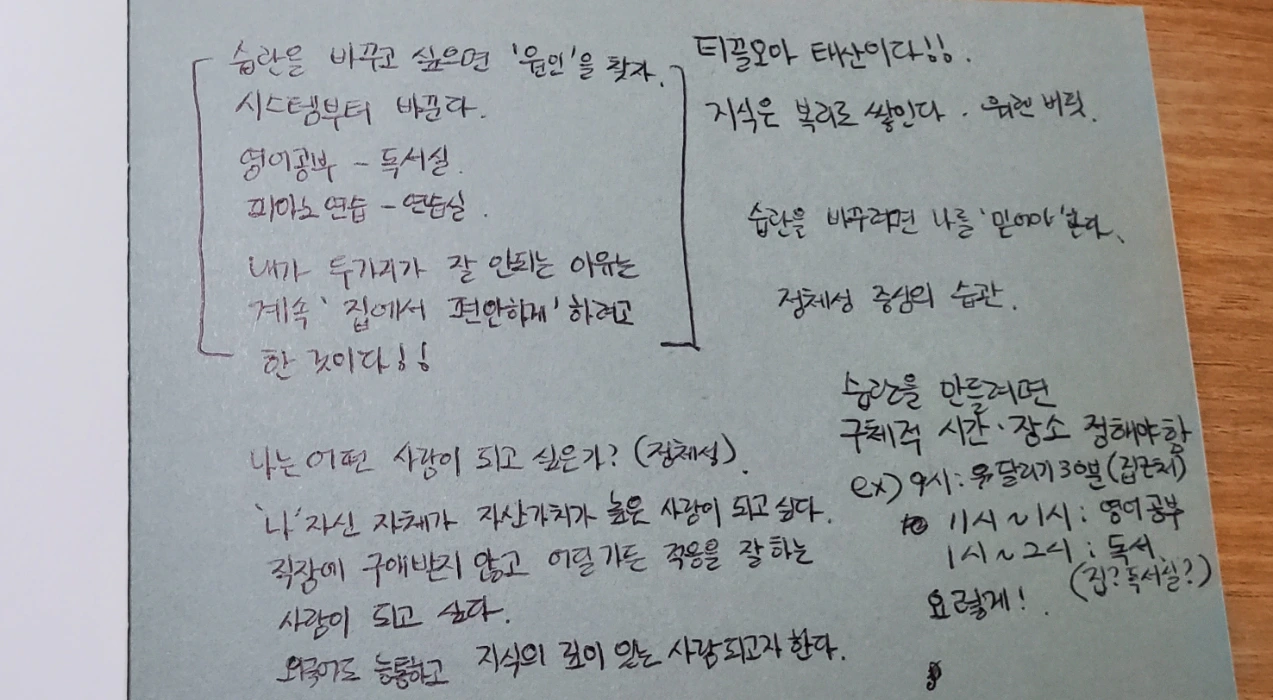 습관을 바꾸고 싶으면 '원인'을 찾자.
시스템부터 바꾼다.
영어공부 - 독서실.
피아노 연습 - 연습실.
내가 두가지가 잘 안되는 이유는
계속 '집에서 편안하게' 하려고
한 것이다!!
나는 어떤 사람이 되고 싶은가? (정체성).
'나' 자신 자체가 자산가치가 높은 사람이 되고 싶다.
직장에 구애받지 않고 어딜가든 적응을 잘 하는
사람이 되고 싶다.
외국어도 능통하고 지식의 깊이 있는 사람되고자 한다.
티끌모아 태산이다!!.
지식은 복리로 쌓인다. 워렌 버핏.
습관을 바꾸려면 나를 '믿어야' 한다.
정체성 중심의 습관.
습관을 만들려면
구체적 시간·장소 정해야함
ex) 9시: 달리기 30분 (집근처)
11시~1시: 영어공부
1시~2시: 독서.
(집? 독서실?)
요렇게!.